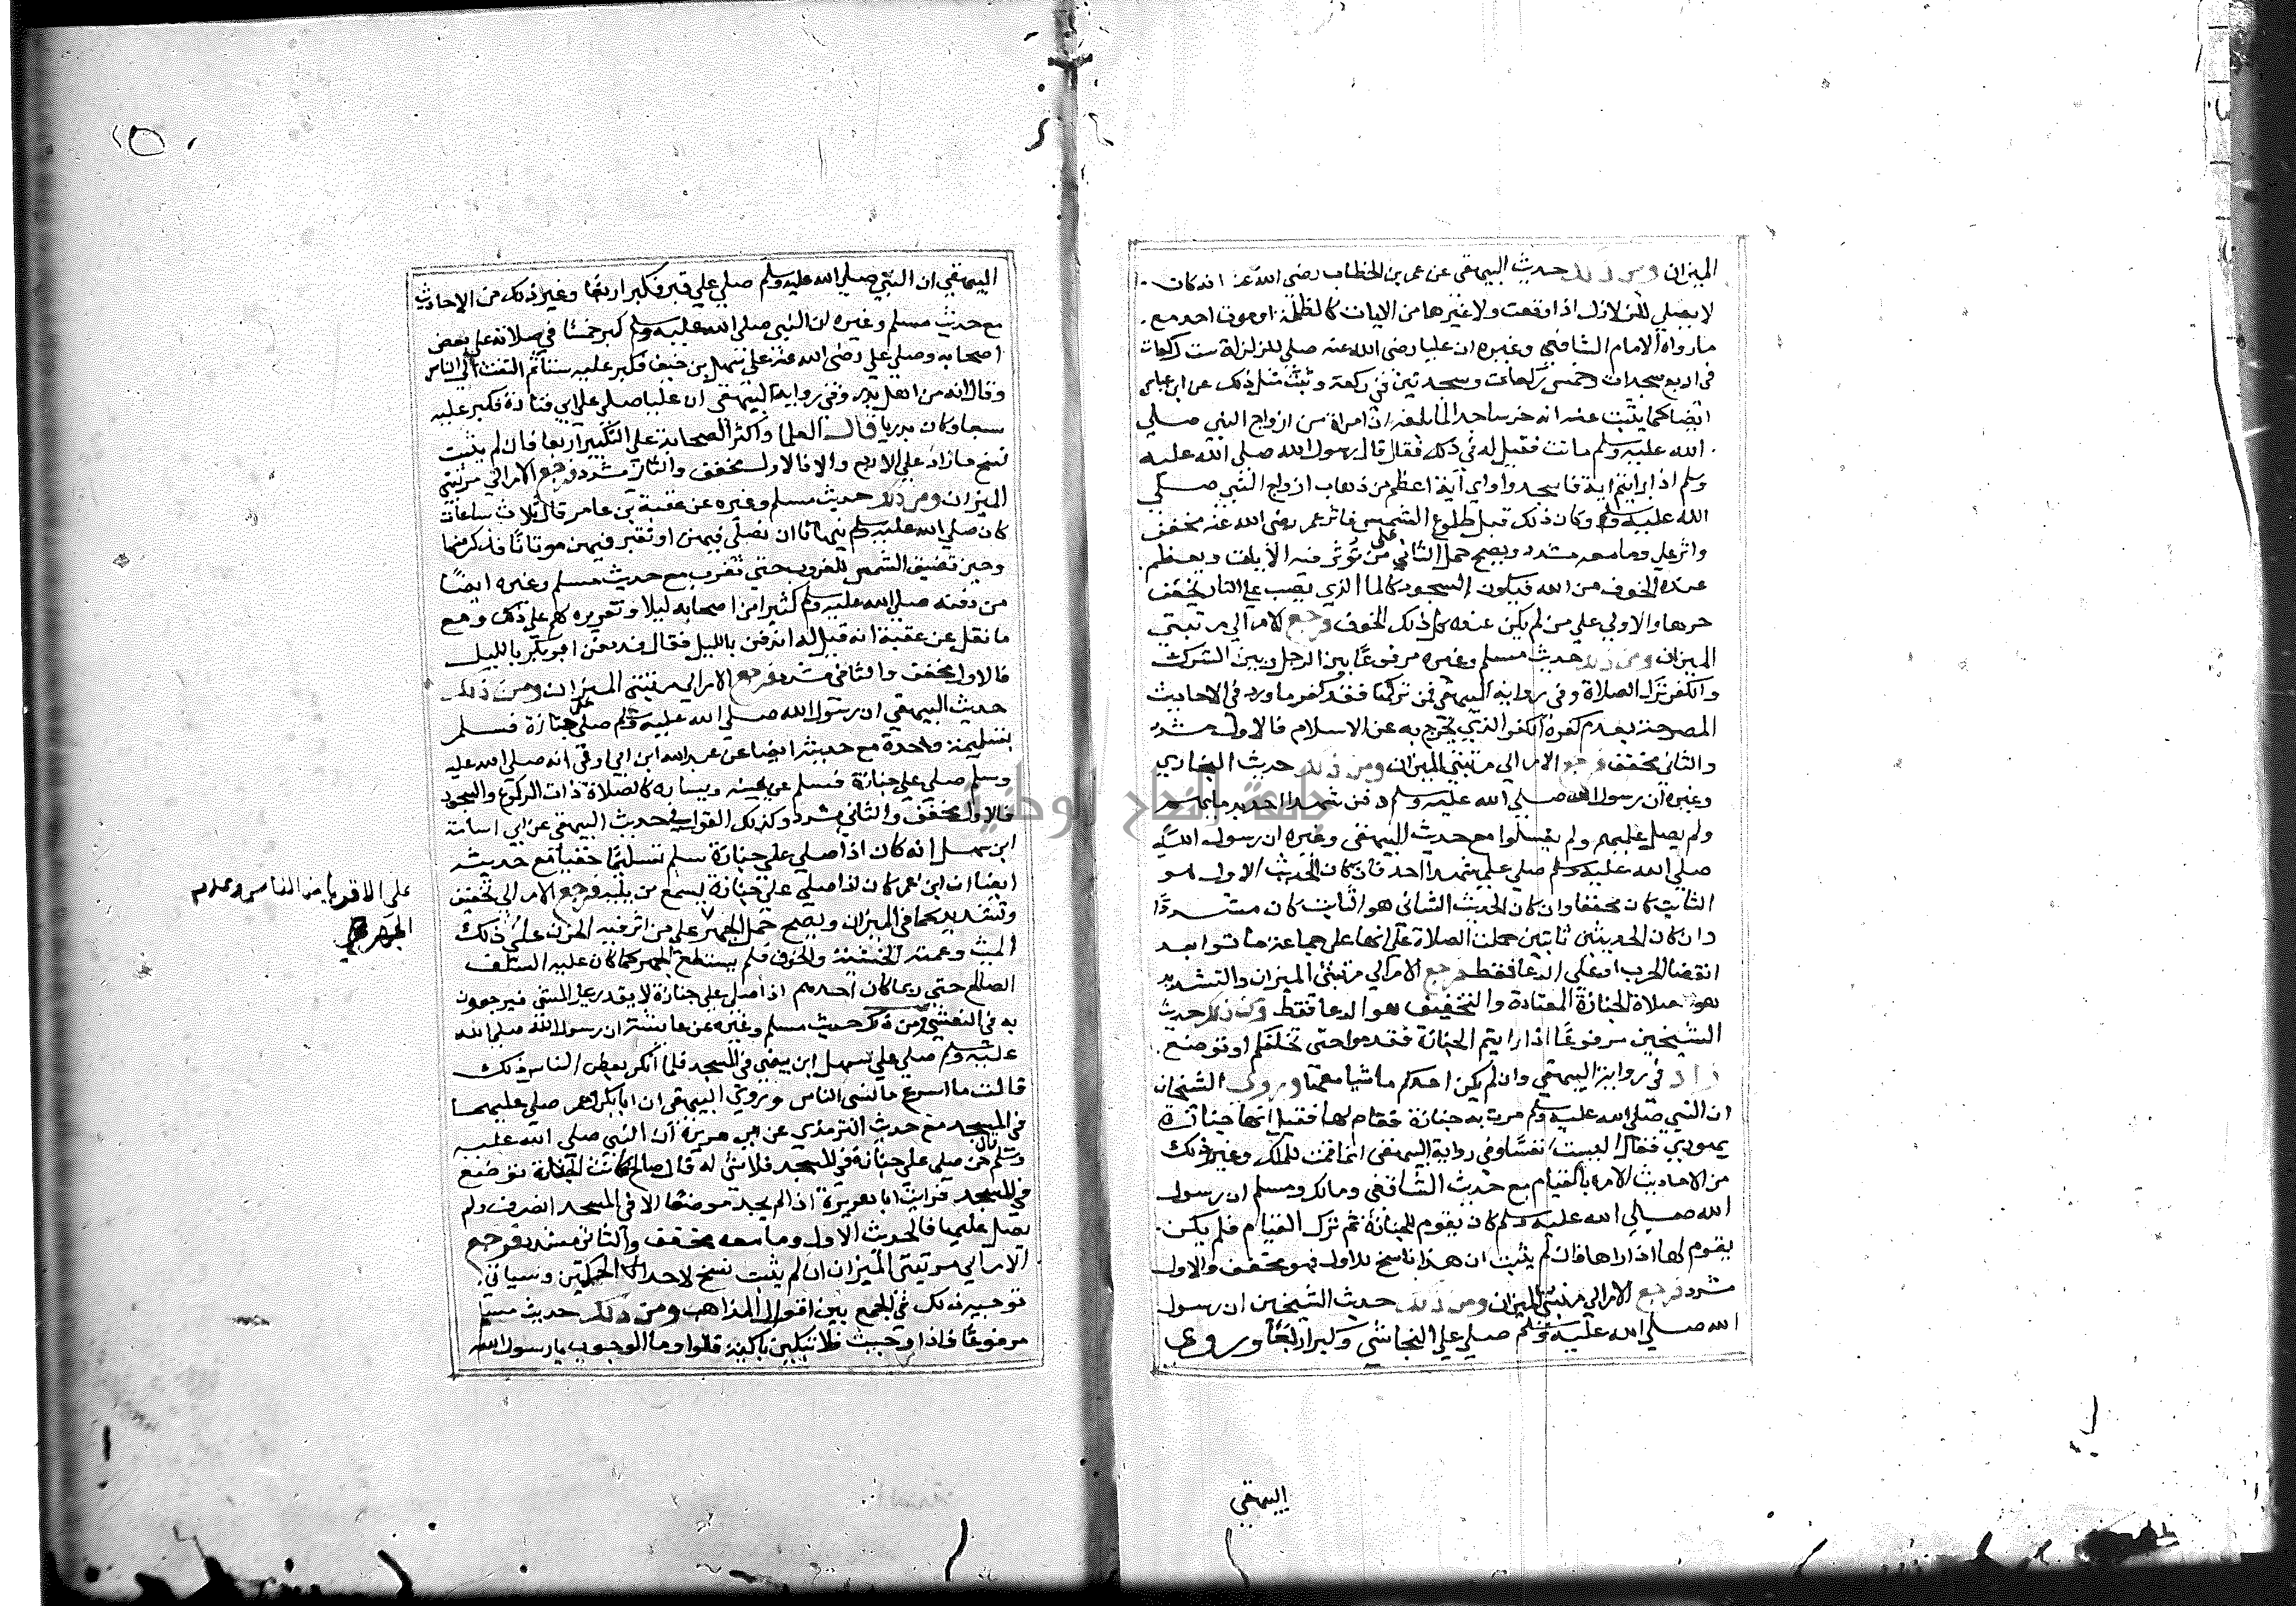 الميزان ومن ذلك حديث البيهقي عن عمر بن الخطاب رضي الله عنه انه كان
لا يصلي للزلازل اذا وقعت ولا غيرها من الايات كالظلمة او موت احد مع
ما رواه الامام الشافعي وغيره ان عليا رضي الله عنه صلي للزلزلة ست ركعات
في اربع سجدات وخمس ركعات وسجدتين في ركعة وثبت مثل ذلك عن ابن عباس
ايضا كما يثبت عنه انه خر ساجدا لما بلغه ان امراة من ازواج النبي صلي
الله عليه وسلم ماتت فقيل له في ذلك فقال قال رسول الله صلي الله عليه
وسلم اذا رايتم اية فاسجدوا واي آية اعظم من ذهاب ازواج النبي صلي
الله عليه وسلم وكان ذلك قبل طلوع الشمس فاثر عمر رضي الله عنه مخفف
واثر علي وما معه مشدد ويصح حمل الثاني علي من تؤثر فيه الايات ويعظم
عنده الخوف من الله فيكون السجود كالما الذي يصب علي النار يخفف
حرها والاولي علي من لم يكن عنده كل ذلك الخوف فرجع الامر الي مرتبتي
الميزان ومن ذلك حديث مسلم وغيره مرفوعا بين الرجل وبين الشرك
والكفر ترك الصلاة وفي رواية البيهقي فمن تركها فقد كفر مع ما ورد في الاحاديث
المصرحة بعدم كفره الكفر الذي يخرج به عن الاسلام فالاول مشدد
والثاني مخفف فرجع الامر الي مرتبتي الميزان ومن ذلك حديث البخاري
وغيره ان رسول الله صلي الله عليه وسلم دفن شهدا احد بدمايهم
ولم يصل عليهم ولم يغسلوا مع حديث البيهقي وغيره ان رسول الله
صلي الله عليه وسلم صلي علي شهدا احد فان كان الحديث الاول هو
الثابت كان مخففا وان كان الحديث الثاني هو الثابت كان مشددا
وان كان الحديثين ثابتين حملت الصلاة علي انها علي جماعة ماتوا بعد
انقضا الحرب او علي الدعا فقط فرجع الامر الي مرتبتي الميزان والتشديد
هو صلاة الجنازة المعتادة والتخفيف هو الدعا فقط ومن ذلك حديث
الشيخين مرفوعا اذا رايتم الجنازة فقوموا حتي تخلفكم او توضع
زاد في رواية البيهقي وان لم يكن احدكم ماشيا معها وروي الشيخان
ان النبي صلي الله عليه وسلم مرت به جنازة فقام لها فقيل انها جنازة
يهودي فقال اليست نفسا وفي رواية البيهقي انما قمت للملك وغير ذلك
من الاحاديث الامرة بالقيام مع حديث الشافعي ومالك ومسلم ان رسول
الله صلي الله عليه وسلم كان يقوم للجنازة ثم ترك القيام فلم يكن
يقوم لها اذا راها فان لم يثبت ان هذا ناسخ للاول فهو مخفف والاول
مشدد فرجع الامر الي مرتبتي الميزان ومن ذلك حديث الشيخين ان رسول
الله صلي الله عليه وسلم صلي علي النجاشي وكبر اربعا وروي
البيهقي
البيهقي ان النبي صلي الله عليه وسلم صلي علي قبر فكبر اربعا وغير ذلك من الاحاديث
مع حديث مسلم وغيره ان النبي صلي الله عليه وسلم كبر خمسا في صلاته علي بعض
اصحابه وصلي علي رضي الله عنه علي سهل بن حنيف فكبر عليه ستا ثم التفت الي الناس
وقال انه من اهل بدر وفي رواية البيهقي ان عليا صلي علي ابي قتادة فكبر عليه
سبعا وكان بدريا قال العلما واكثر الصحابة علي التكبير اربعا فان لم يثبت
نسخ ما زاد علي الاربع والا فالاول مخفف والثاني مشدد فرجع الامر الي مرتبتي
الميزان ومن ذلك حديث مسلم وغيره عن عقبة بن عامر قال ثلاث ساعات
كان صلي الله عليه وسلم ينهانا ان نصلي فيهن او نقبر فيهن موتانا فذكر منها
وحين تضيف الشمس للغروب حتي تغرب مع حديث مسلم وغيره ايضا
من دفنه صلي الله عليه وسلم كثيرا من اصحابه ليلا وتقريره لهم علي ذلك ومع
ما نقل عن عقبة انه قيل له اندفن بالليل فقال قد دفن ابو بكر بالليل
فالاول مخفف والثاني مشدد فرجع الامر الي مرتبتي الميزان ومن ذلك
حديث البيهقي ان رسول الله صلي الله عليه وسلم صلي علي جنازة فسلم
تسليمة واحدة مع حديثه ايضا عن عبد الله ابن ابي اوفي انه صلي الله عليه
وسلم صلي علي جنازة فسلم عن يمينه ويساره كالصلاة ذات الركوع والسجود
فالاول مخفف والثاني مشدد وكذلك القول في حديث البيهقي عن ابي امامة
ابن سهل انه كان اذا صلي علي جنازة سلم تسليما خفيا مع حديثه
ايضا ان ابن عمر كان اذا صلي علي جنازة يسمع من يليه فرجع الامر الي تخفيف
وتشديد كما في الميزان ويصح حمل الجهر علي من اثر فيه الحزن علي ذلك
الميت وعمته الخشية والخوف فلم يستطع الجهر كما كان عليه السلف
الصالح حتي ربما كان احدهم اذا صلي علي جنازة لا يقدر علي المشي فيرجعون
به في النعش ومن ذلك حديث مسلم وغيره عن عايشة ان رسول الله صلي الله
عليه وسلم صلي علي سهيل ابن بيضي في المسجد فلما انكر بعض الناس ذلك
قالت ما اسرع ما نسي الناس وروي البيهقي ان ابا بكر وعمر صلي عليهما
في المسجد مع حديث الترمذي عن ابي هريرة ان النبي صلي الله عليه
وسلم قال من صلي علي جنازة في المسجد فلا شي له قال صالح كانت الجنازة توضع
في المسجد فرايت ابا هريرة اذا لم يجد موضعا الا في المسجد انصرف ولم
يصل عليها فالحديث الاول وما معه مخفف والثاني مشدد فرجع
الامر الي مرتبتي الميزان ان لم يثبت نسخ لاحد الحكمين وسياتي
توجيه ذلك في الجمع بين اقوال المذاهب ومن ذلك حديث مسلم
مرفوعا فاذا وجبت فلا تبكين باكية قالوا وما الوجوب يا رسول الله
علي الاقويا من الناس وعدم
الجهر
جامعة النجاح الوطنية